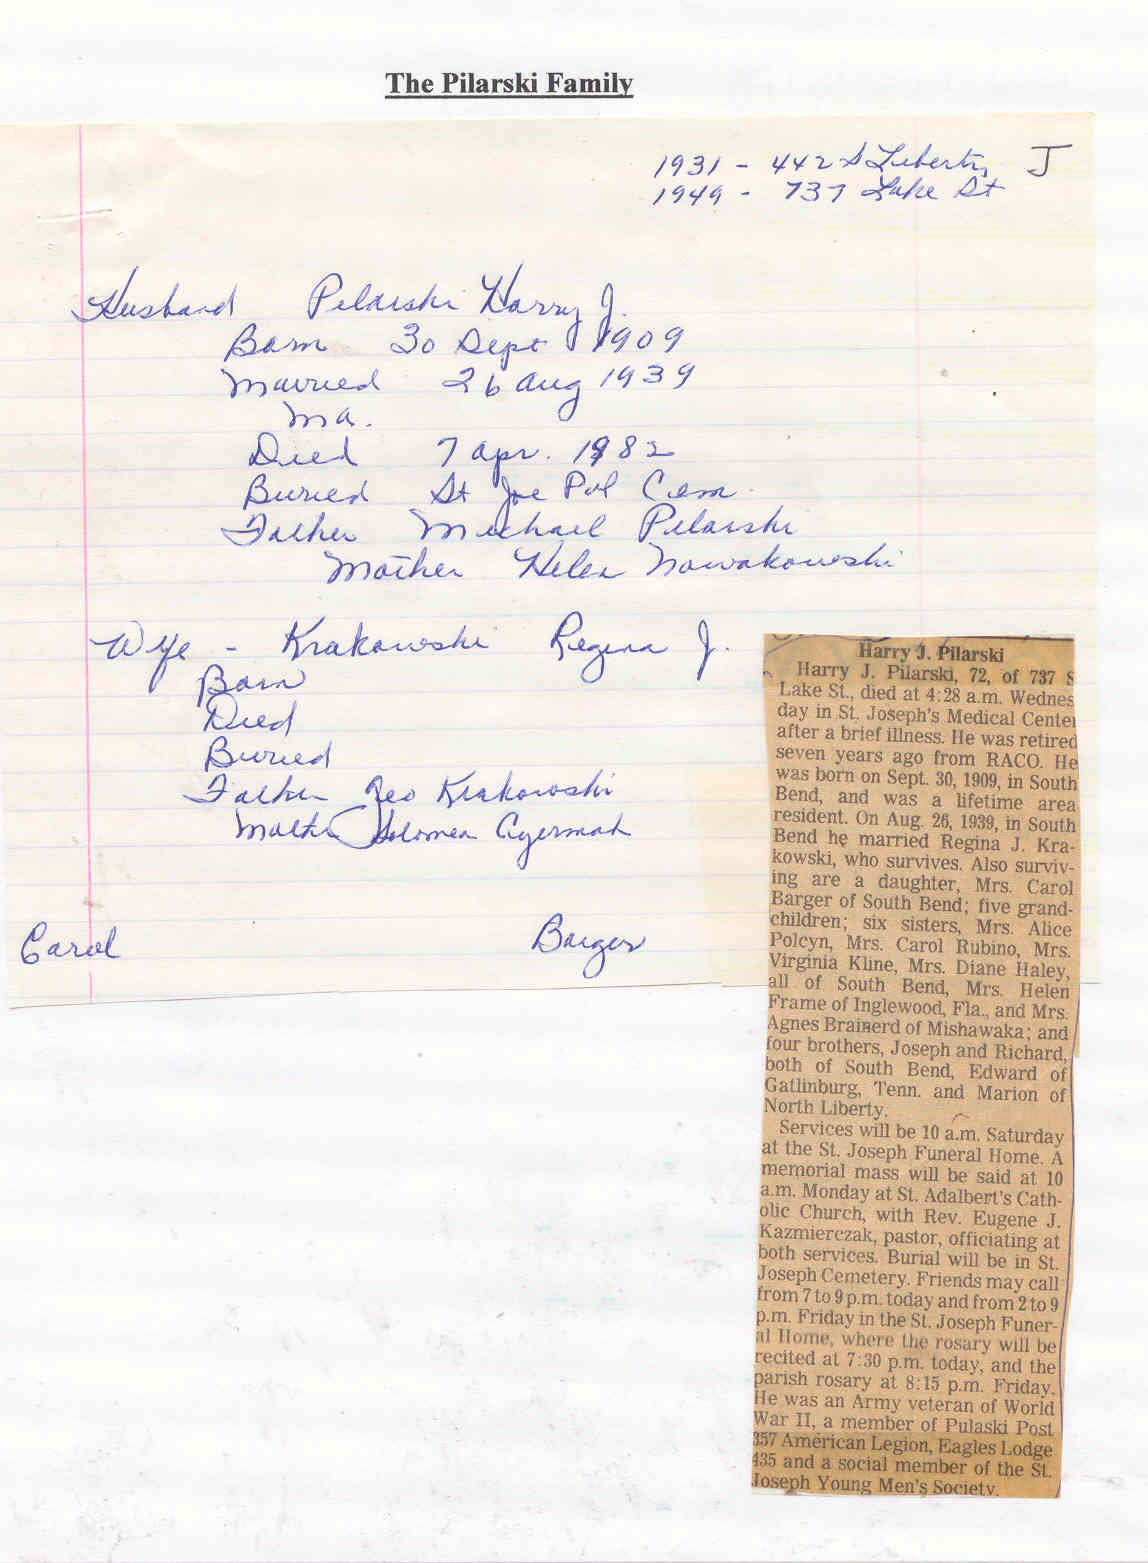 The Pilarski Family
1931 - 442 S Liberty J
1949 - 737 Lake St
Husband Pilarski Harry J.
Born 30 Sept 1909
Married 26 Aug 1939
Ma.
Died 7 Apr. 1982
Buried St Joe Pol Cem.
Father Michael Pilarski
Mother Helen Nowakowski
Wife - Krakowski Regina J.
Born
Died
Buried
Father Leo Krakowski
Mother
Carol Barger
Harry J. Pilarski
Harry J. Pilarski, 72, of 737 S
Lake St., died at 4:28 a.m. Wednes
day in St. Joseph's Medical Center
after a brief illness. He was retired
seven years ago from RACO. He
was born on Sept. 30, 1909, in South
Bend, and was a lifetime area
resident. On Aug. 26, 1939, in South
Bend he married Regina J. Kra-
kowski, who survives. Also surviv-
ing are a daughter, Mrs. Carol
Barger of South Bend; five grand-
children; six sisters, Mrs. Alice
Polcyn, Mrs. Carol Rubino, Mrs.
Virginia Kline, Mrs. Diane Haley,
all of South Bend, Mrs. Helen
Frame of Inglewood, Fla., and Mrs.
Agnes Brainerd of Mishawaka; and
four brothers, Joseph and Richard,
both of South Bend, Edward of
Gatlinburg, Tenn. and Marion of
North Liberty.
Services will be 10 a.m. Saturday
at the St. Joseph Funeral Home. A
memorial mass will be said at 10
a.m. Monday at St. Adalbert's Cath-
olic Church, with Rev. Eugene J.
Kazmierczak, pastor, officiating at
both services. Burial will be in St.
Joseph Cemetery. Friends may call
from 7 to 9 p.m. today and from 2 to 9
p.m. Friday in the St. Joseph Funer-
al Home, where the rosary will be
recited at 7:30 p.m. today, and the
parish rosary at 8:15 p.m. Friday.
He was an Army veteran of World
War II, a member of Pulaski Post
357 American Legion, Eagles Lodge
435 and a social member of the St.
Joseph Young Men's Society.